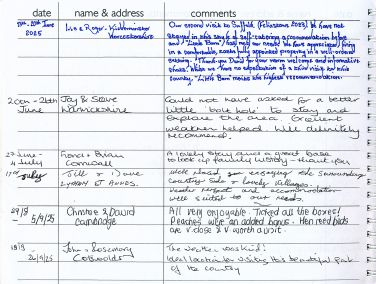 date name & address comments
13th-20th June 2025 Lin & Roger - Kidderminster Worcestershire
Our second visit to Suffolk (Felixstowe 2023). We have not
stayed in this style of self-catering accommodation before
and "Little Barn" has met our needs. We have appreciated being
in a comfortable, well appointed property in a well-
setting. "Thank you David" for your warm welcome and informative
When we have the satisfaction of a return visit to this
County, "Little Barn" has the highest recommendation.
20th - 26th June Jay & Steve Warwickshire
Could not have asked for a better
little 'bolt hole' to stay and
explore the area. Excellent
weather helped. Will definitely
recommend.
27 June - 4 July Fiona & Brian Cornwall
A lovely stay and a great base
to look up family history - thank you
July Jill & Dave Lytham St Annes.
Week placed for enjoying the surrounding
country side & lovely villages.
and accommodation
well suited to our needs.
29/8 - 5/9/25 Christine & David Cambridge
All very enjoyable. Ticked all the boxes!
Peaches were an added bonus. Hen reed beds
are v. close & v. worth a visit.
John & Rosemary Cotswolds
26/9/25
The weather was kind!
Ideal location for visiting this beautiful part
of the country